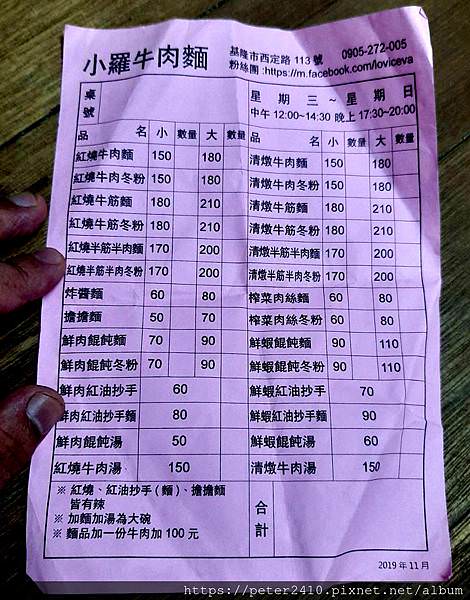 小羅牛肉麵
基隆市西定路 113 號 0905-272-005
粉絲團 :https://m.facebook.com/loviceva
桌號
星期三~星期日
中午 12:00~14:30 晚上 17:30~20:00
品名 小 數量 大 數量 品名 小 數量 大 數量
紅燒牛肉麵 150 180 清燉牛肉麵 150 180
紅燒牛肉冬粉 150 180 清燉牛肉冬粉 150 180
紅燒牛筋麵 180 210 清燉牛筋麵 180 210
紅燒牛筋冬粉 180 210 清燉牛筋冬粉 180 210
紅燒半筋半肉麵 170 200 清燉半筋半肉麵 170 200
紅燒半筋半肉冬粉 170 200 清燉半筋半肉冬粉 170 200
炸醬麵 60 80 榨菜肉絲麵 60 80
擔擔麵 50 70 榨菜肉絲冬粉 60 80
鮮肉餛飩麵 70 90 鮮蝦餛飩麵 90 110
鮮肉餛飩冬粉 70 90 鮮蝦餛飩冬粉 90 110
鮮肉紅油抄手 60 鮮蝦紅油抄手 70
鮮肉紅油抄手麵 80 鮮蝦紅油抄手麵 90
鮮肉餛飩湯 50 鮮蝦餛飩湯 60
紅燒牛肉湯 150 清燉牛肉湯 150
※ 紅燒、紅油抄手(麵)、擔擔麵
皆有辣
※ 加麵加湯為大碗
※ 麵品加一份牛肉加 100 元
合計
2019 年 11 月
https://peter2410.pixnet.net/album